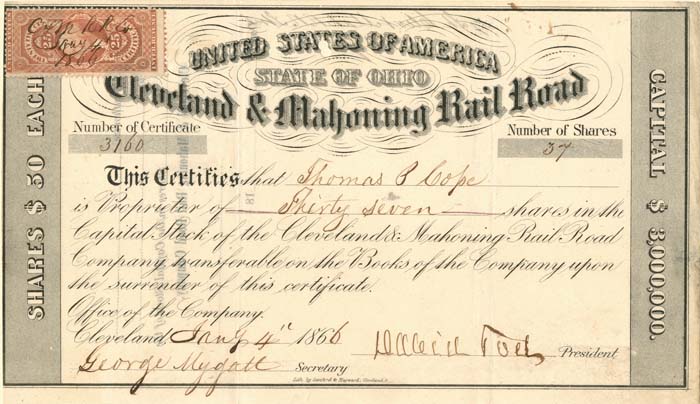 UNITED STATES OF AMERICA
STATE OF OHIO
Cleveland & Mahoning Rail Road
Number of Certificate
3160
Number of Shares
37
SHARES $ 50 EACH
CAPITAL $ 3,000,000.
This Certifies that Thomas P Cope
is Proprietor of Thirty Seven shares in the
Capital Stock of the Cleveland & Mahoning Rail Road
Company transferable on the Books of the Company upon
the surrender of this certificate.
Office of the Company.
Cleveland, Jany 4th 1866
David Tod President
George Mygatt Secretary